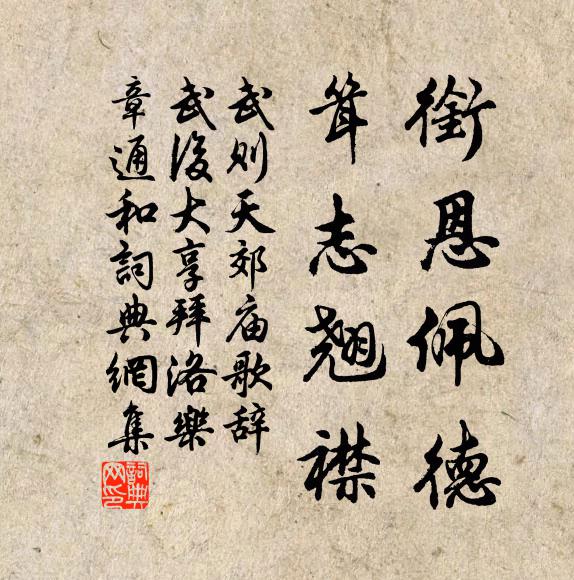 銜恩佩德
耸志翹襟
武则天郊庙歌辞
武後大享拜洛樂
章通和詞典網集
詞典網印